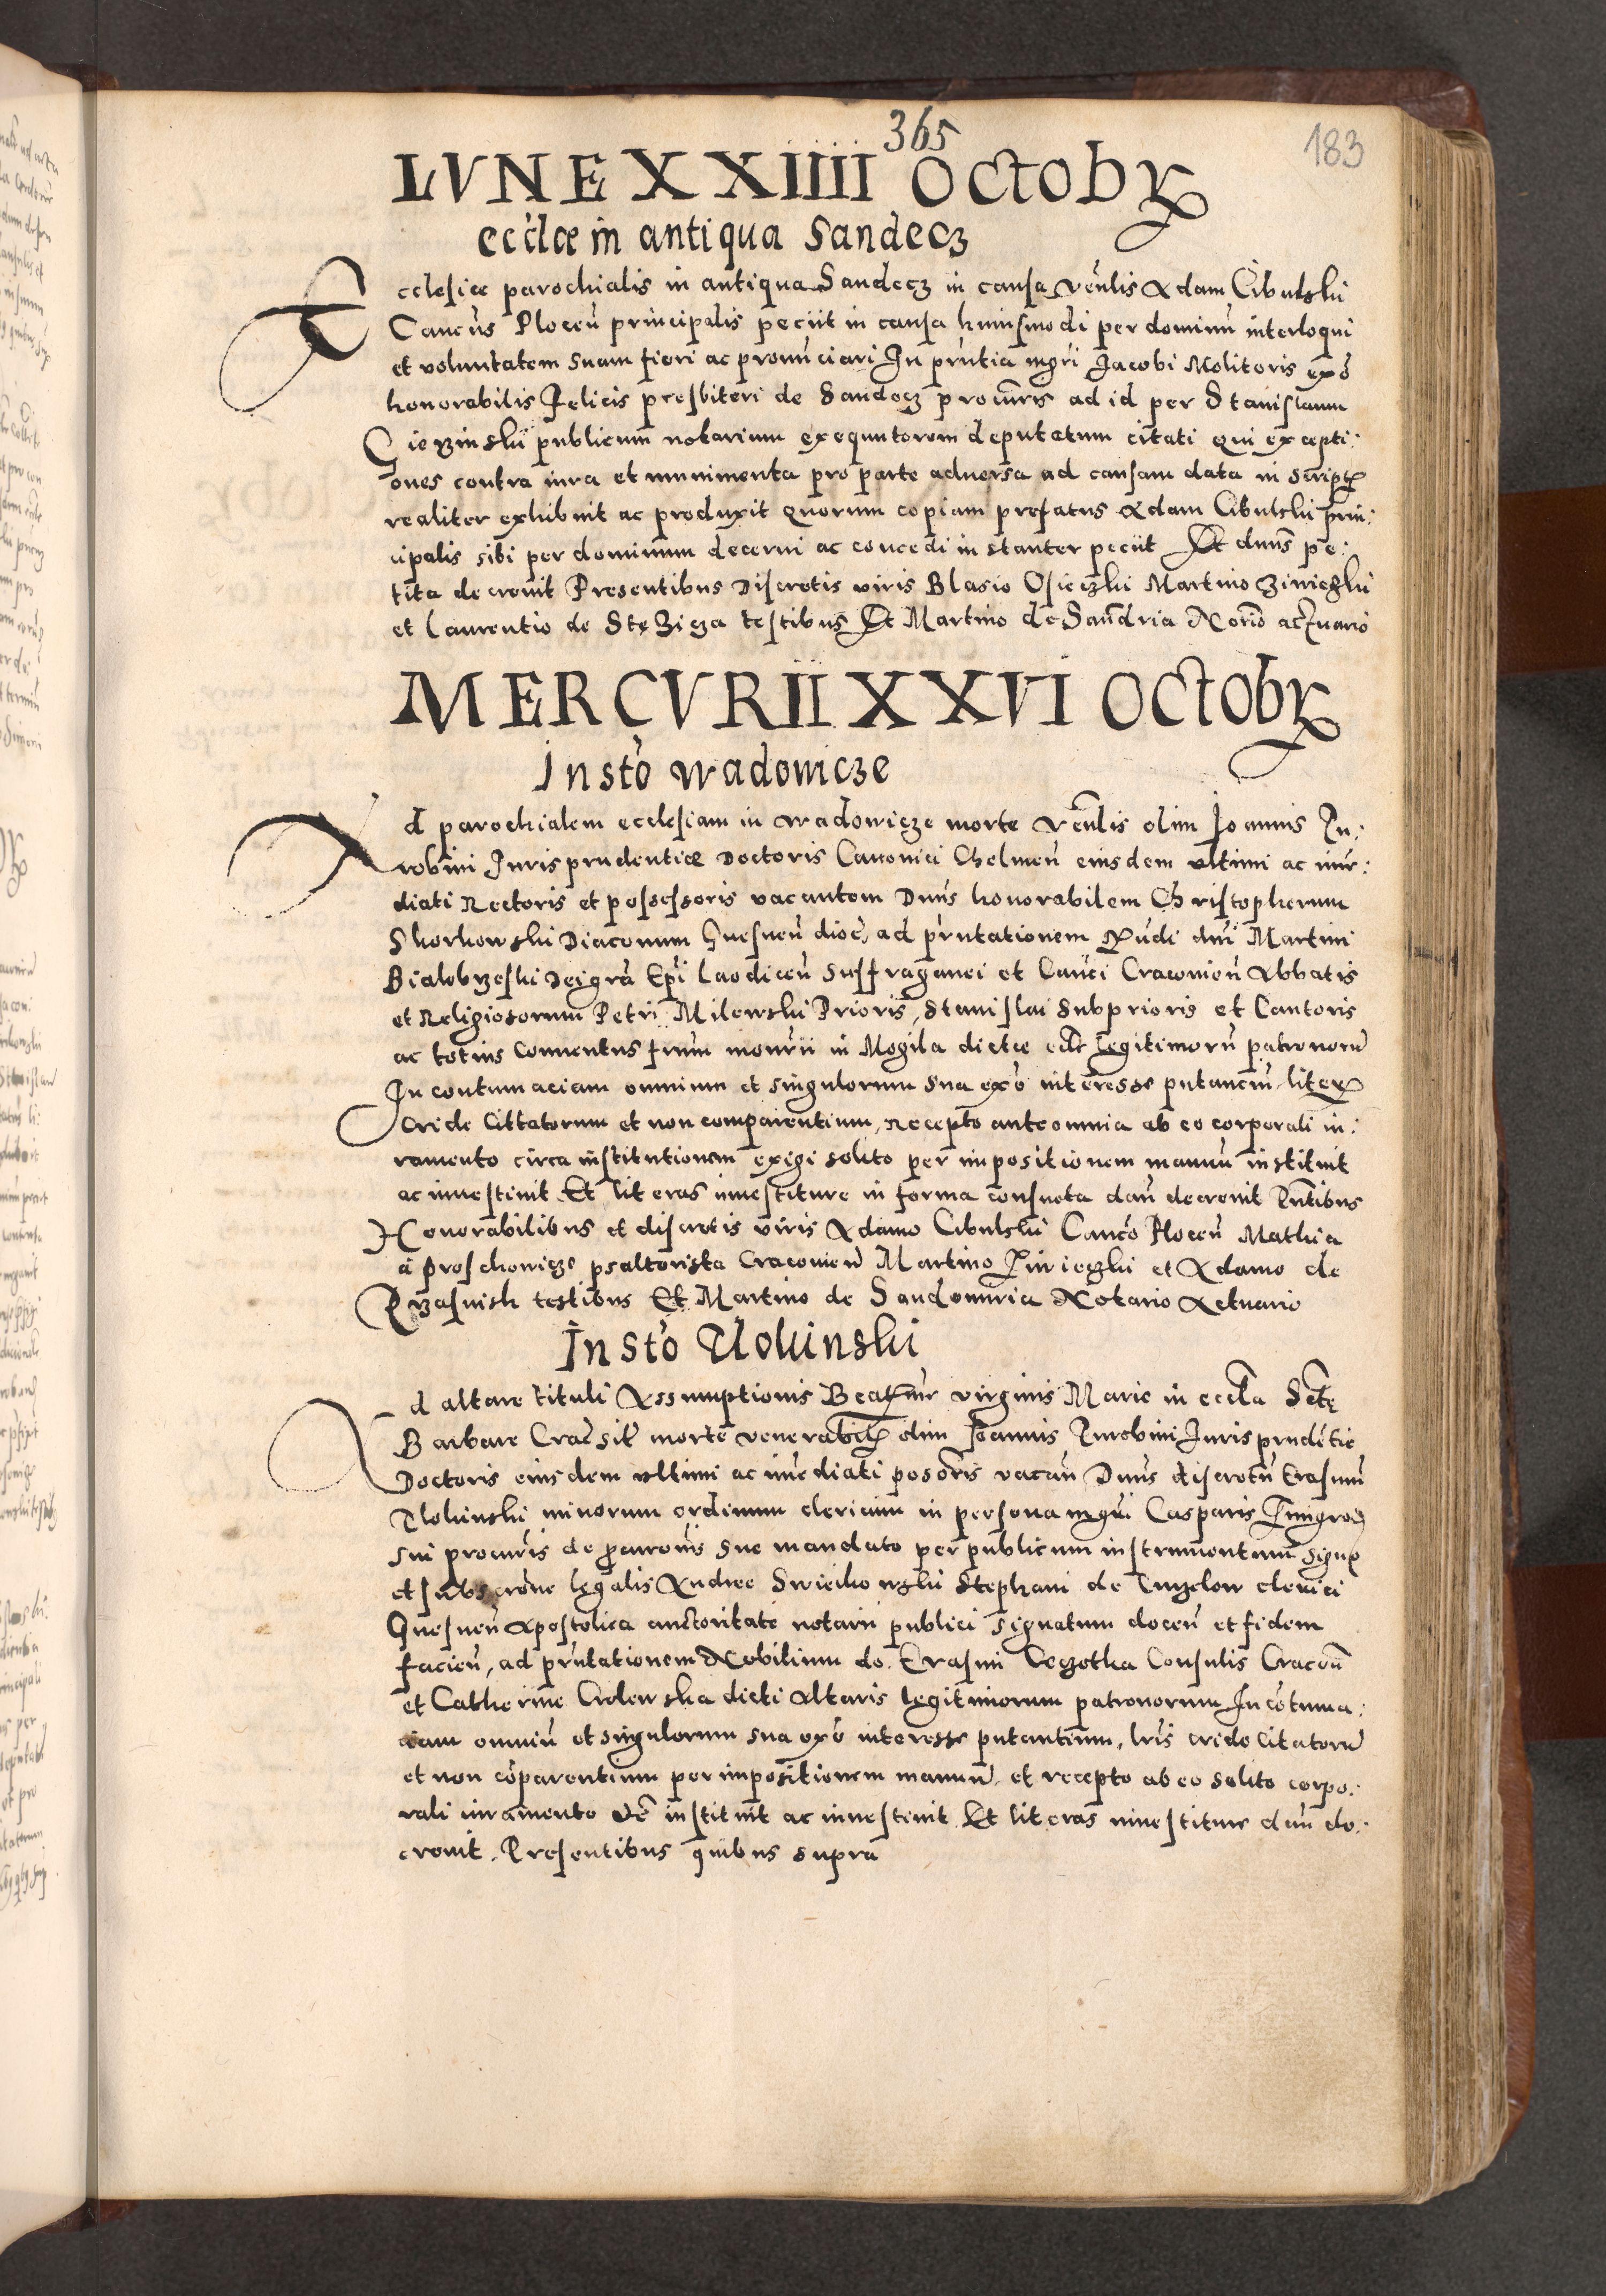 365
183
LVNE XXIIII OctobR
eccl'æ in antiqua Sandecz
Ecclesiæ parochialis in antiqua Sandecz in causa Ven̄lis Adam Cibulski
Canc̄us Plocen̄ principalis peciit in causa huiusmodi per dominū interloqui
et voluntatem suam fieri ac pronūciari In pr̄ntia mgr̄i Jacobi Molitoris exō
honorabilis Felicis presbiteri de Sandecz procur̄ris ad id per Stanislaum
Gierzinski publicum notarium exequutorem deputatum citati qui excepti:
ones contra iura et munimenta pro parte adversa ad causam data in script
realiter exhibuit ac produxit quorum copiam prefatus Adam Cibulski prin:
cipalis sibi per dominum decerni ac concedi instanter peciit Et dnūs pe:
tita decrevit Presentibus Discretis viris Blasio Osieczki Martino
et Laurentio de Stęzicza testibus Et Martino de Sand̄ria Nor̄io actuario
MERCVRII XXVI OctobR
Insto Wadowicze
Ad parochialem ecclesiam in Wadowicze morte Ven̄lis olim Joannis Pu:
robini Jurisprudentiæ Doctoris Canonici Chelmen̄ eiusdem ultimi ac imme:
diati Rectoris et possessoris vacantem Dnūs honorabilem Christopherum
Skorkowski Diaconum Gnesnen̄ dioc̄, ad pr̄ntationem Rn̄di dn̄i Martini
Bialobrzeski Dei gr̄a Ep̄i Laodicen̄ Suffraganei et Canc̄i Cracovien̄ Abbatis
et Religiosorum Petri Milewski Prioris, Stanislai Subprioris et Cantoris
ac totius Conventus frūm mon̄rii in Mogila dictæ eccl̄e legitimorū patronorū
In contumaciam omnium et singulorum sua exō interesse putanciū, liter
cride Cittatorum et non comparentium, Recepto ante omnia ab eo corporali iu:
ramento circa institutionem exigi solito per impositionem manuū instituit
ac investivit Et literas investiture in forma consueta dan̄ decrevit Pn̄tibus
Honorabilibus et discretis viris Adamo Cibulski Canc̄o Plocen̄ Mathia
a Proschowicze psalterista Cracovien̄ Martino et Adamo de
Przasnish testibus Et Martino de Sandomiria Notario Actuario
Insto Plokinski
Ad altare tituli Assumptionis Beat virginis Marie in eccl̄a Sctę
Barbare Crac̄ sit̄ morte venerabil olim Joannis Purobini Jurisprudētie
Doctoris eiusdem ultimi ac im̄ediati posōris vacan̄ Dnūs discretū Erasmū
Plokinski minorum ordinum clericum in persona Casparis
sui procur̄is de procur̄is sue mandato per publicum instrumentum signo
et subscr̄one legalis Andree Swiechowski Stephani de clerici
Gnesnen̄ Apostolica auctoritate notarii publici signatum docen̄ et fidem
facien̄, ad pr̄ntationem Nobilium do. Erasmi Czeczotka Consulis Cracov̄
et Catherine dicti Altaris legitimorum patronorum In cōtuma:
ciam omniū et singulorum sua exō interesse putantium, lr̄is cride Citatorū
et non cōparentium per impositionem manuū, et recepto ab eo solito corpo:
rali iuramento instituit ac investivit Et literas investiture dan̄ de:
crevit. Presentibus quibus supra